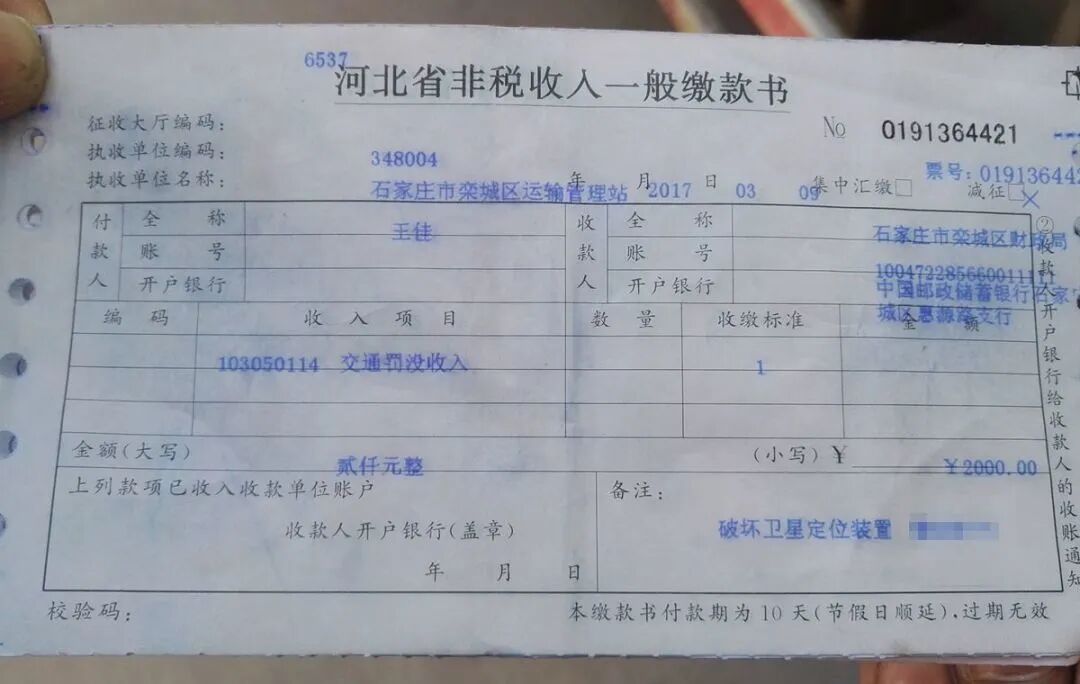 6537
河北省非税收入一般缴款书
征收大厅编码：
No 0191364421
执收单位编码： 348004
票号：019136442
执收单位名称： 石家庄市栾城区运输管理站 2017年 03月 09日 集中汇缴□ 减征□
付款人 全称 王佳 收款人 全称 石家庄市栾城区财政局
账号 账号
开户银行 开户银行 中国邮政储蓄银行石家
城区惠源路支行
编码 收入项目 数量 收缴标准 金额
103050114 交通罚没收入 1
金额(大写) 贰仟元整 (小写)￥ ￥2000.00
上列款项已收入收款单位账户 备注：
收款人开户银行(盖章) 破坏卫星定位装置
年 月 日
校验码： 本缴款书付款期为10天(节假日顺延),过期无效
②收款人开户银行给收款人的收账通知